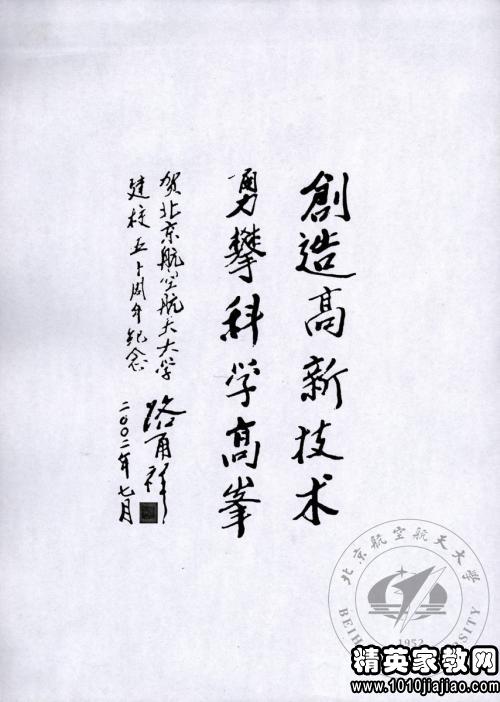 創造高新技术
勇攀科学高峯
贺北京航空航天大学
建校五十周年纪念
路甬祥
二〇〇二年七月
北京航空航天大学
BEIH
SITY
1952
精英家教网
www.1010jiajiao.com